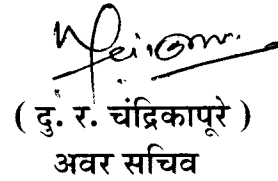 ( दु. र. चंद्रिकापूरे )
अवर सचिव